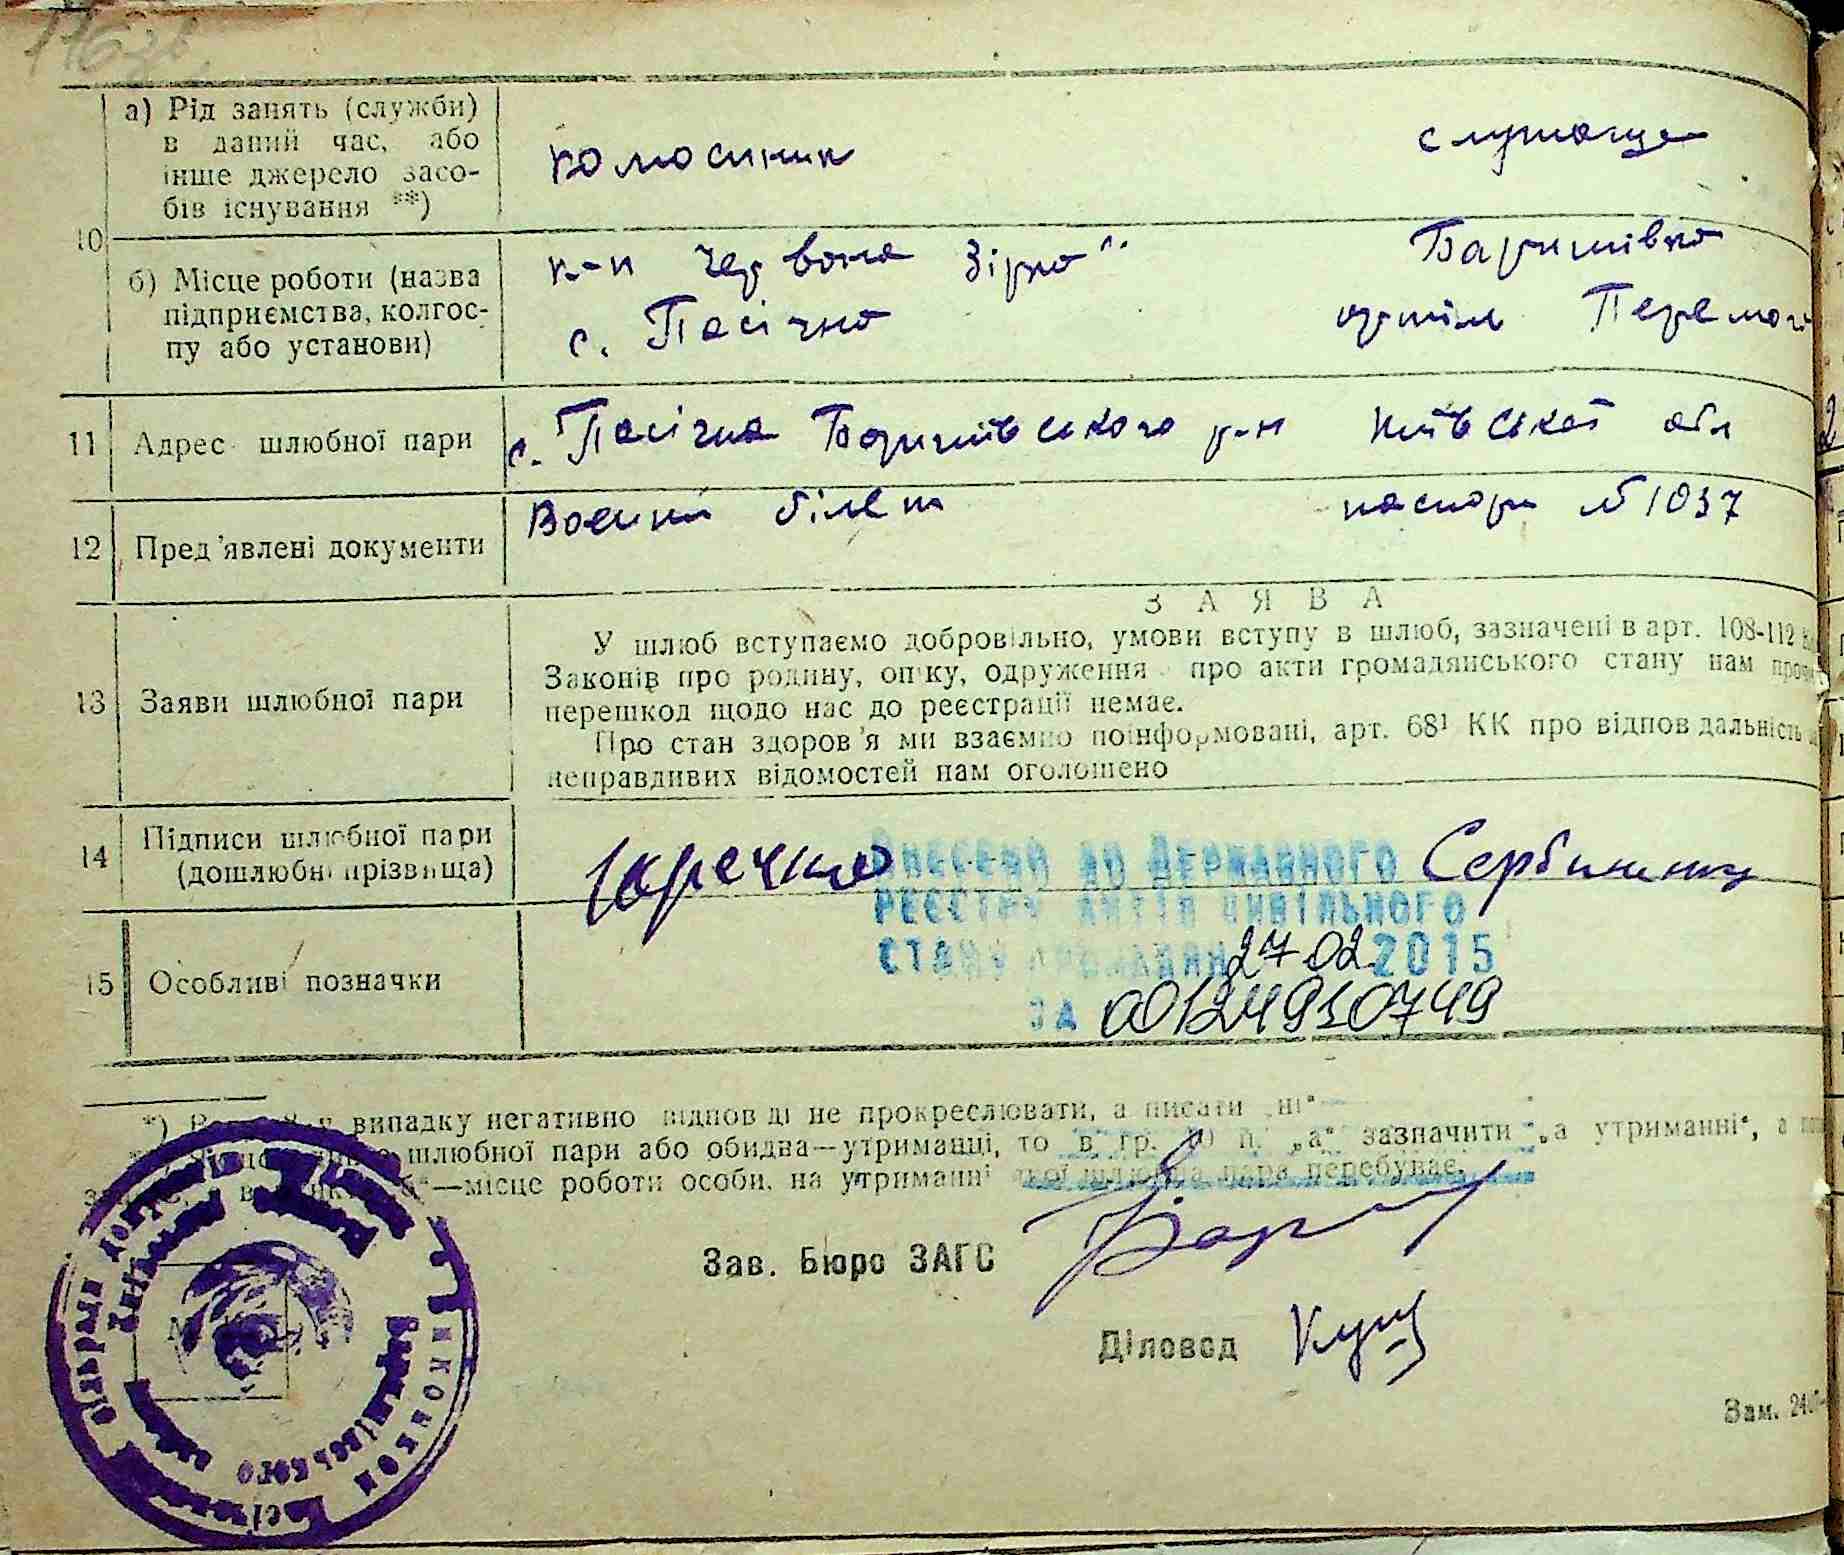 а) Рід занять (служби)
в даний час, або
інше джерело засо-
бів існування **)
служаща
10
б) Місце роботи (назва
підприємства, колгос-
пу або установи)
к-п Червона Зірка"
с. Пасічна
Баришівка
артіль Перемога
11 Адрес шлюбної пари
с. Пасічна Баришівського р-н Київської обл
12 Пред'явлені документи
Воєнний білет паспорт № 1037
13 Заяви шлюбної пари
ЗАЯВА
У шлюб вступаємо добровільно, умови вступу в шлюб, зазначені в арт. 108-112
Законів про родину, опіку, одруження про акти громадянського стану нам
перешкод щодо нас до реєстрації немає.
Про стан здоров'я ми взаємно поінформовані, арт. 68¹ КК про відповідальність
неправдивих відомостей нам оголошено
14 Підписи шлюбної пари
(дошлюбні прізвища)
Юречко Сербиненко
15 Особливі позначки
ВНЕСЕНО ДО ДЕРЖАВНОГО
РЕЄСТРУ АКТІВ ЦИВІЛЬНОГО
СТАНУ ГРОМАДЯН 27 02 2015
ЗА 00124910749
*) випадку негативно відповіді не прокреслювати, а писати „ні“
шлюбної пари або обидва—утриманці, то в гр. 10 п. „а“ зазначити „а утриманні“, а
—місце роботи особи, на утриманні якої шлюбна пара перебуває.
Зав. Бюро ЗАГС
Діловод Кущ
Виконком Пасічна
Баришівського
Зам.